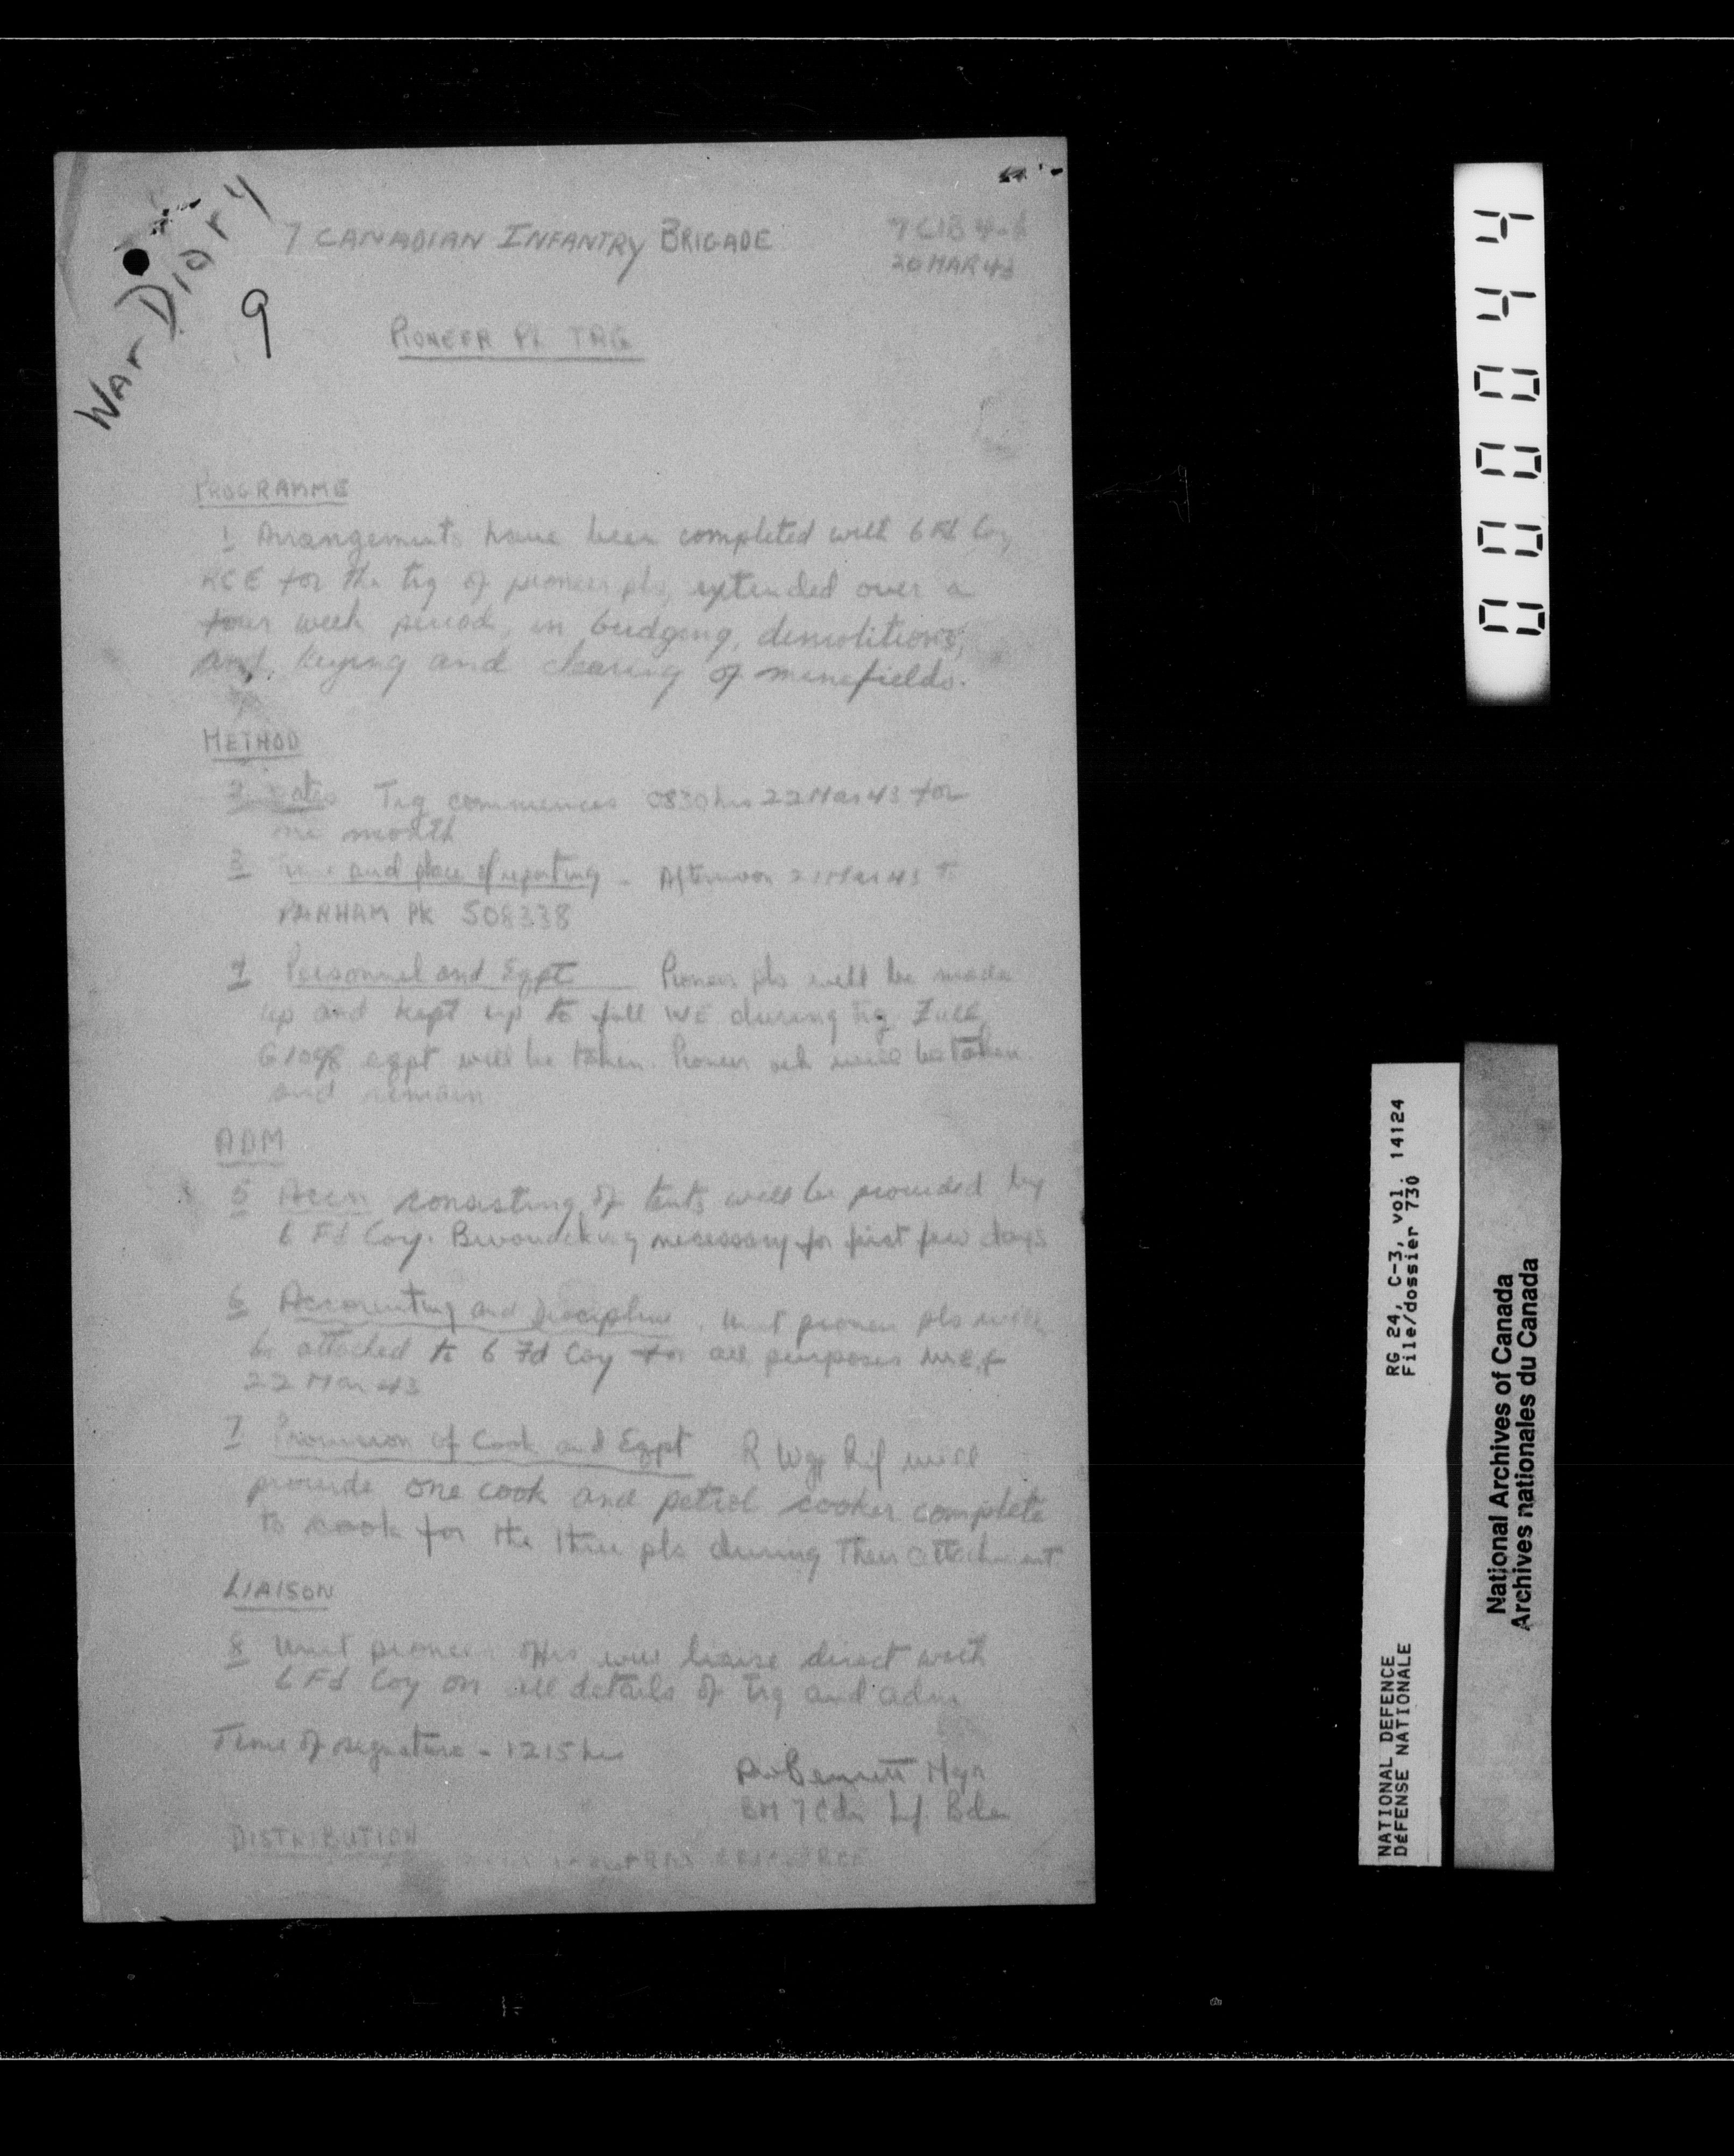 War Diary
9
7 CANADIAN INFANTRY BRIGADE
7 CIB
20 MAR 43
PIONEER PL TRG
PROGRAMME
1 Arrangements have been completed with 6 Fd Coy
RCE for the trg of pioneer pls, extended over a
four week period, in bridging, demolitions,
and, laying and clearing of minefields.
METHOD
2 Dates Trg commences 0830 hrs 22 Mar 43 for
one month
3 Time and place of reporting - Afternoon 21 Mar 43 to
PARHAM PK 508338
4 Personnel and Eqpt Pioneer pls will be made
up and kept up to full WE during trg. Full
G1098 eqpt will be taken. Pioneer veh will be taken
and remain
ADM
5 Accn consisting of tents will be provided by
6 Fd Coy. Bivouacking necessary for first few days
6 Accounting and Discipline. Unit pioneer pls will
be attached to 6 Fd Coy for all purposes w.e.f.
22 Mar 43
7 Provision of Cook and Eqpt R Wpg Rif will
provide one cook and petrol cooker complete
to cook for the three pls during their attachment
LIAISON
8 Unit pioneer offrs will liaise direct with
6 Fd Coy on all details of trg and adm
Time of signature - 1215 hrs
Bennett Major
BM 7 Cdn Inf Bde
DISTRIBUTION
000044
RG 24, C-3, vol. 14124
File/dossier 730
NATIONAL DEFENCE
DéFENSE NATIONALE
National Archives of Canada
Archives nationales du Canada